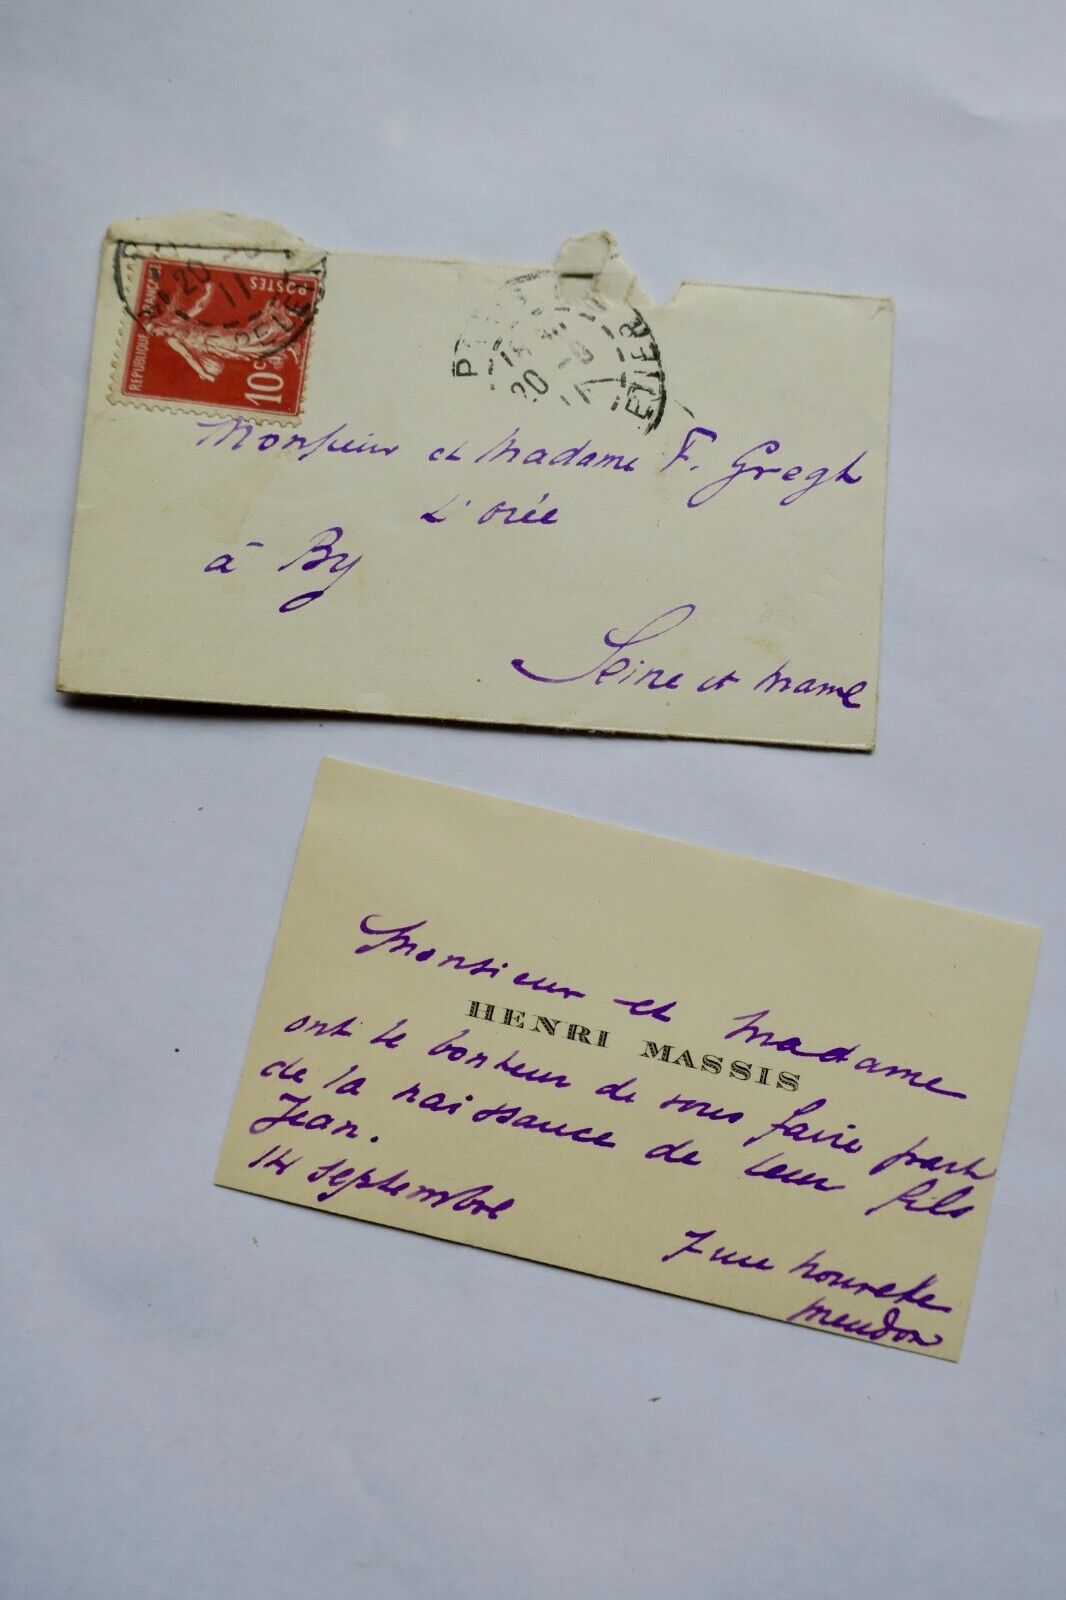 REPUBLIQUE FRANÇAISE
POSTES
10c
20
11
20 - 9
11
Monsieur et Madame F. Gregh
L'orée
à By
Seine et Marne
Monsieur et Madame
HENRI MASSIS
ont le bonheur de vous faire part
de la naissance de leur fils
Jean.
14 septembre
7 rue
Meudon